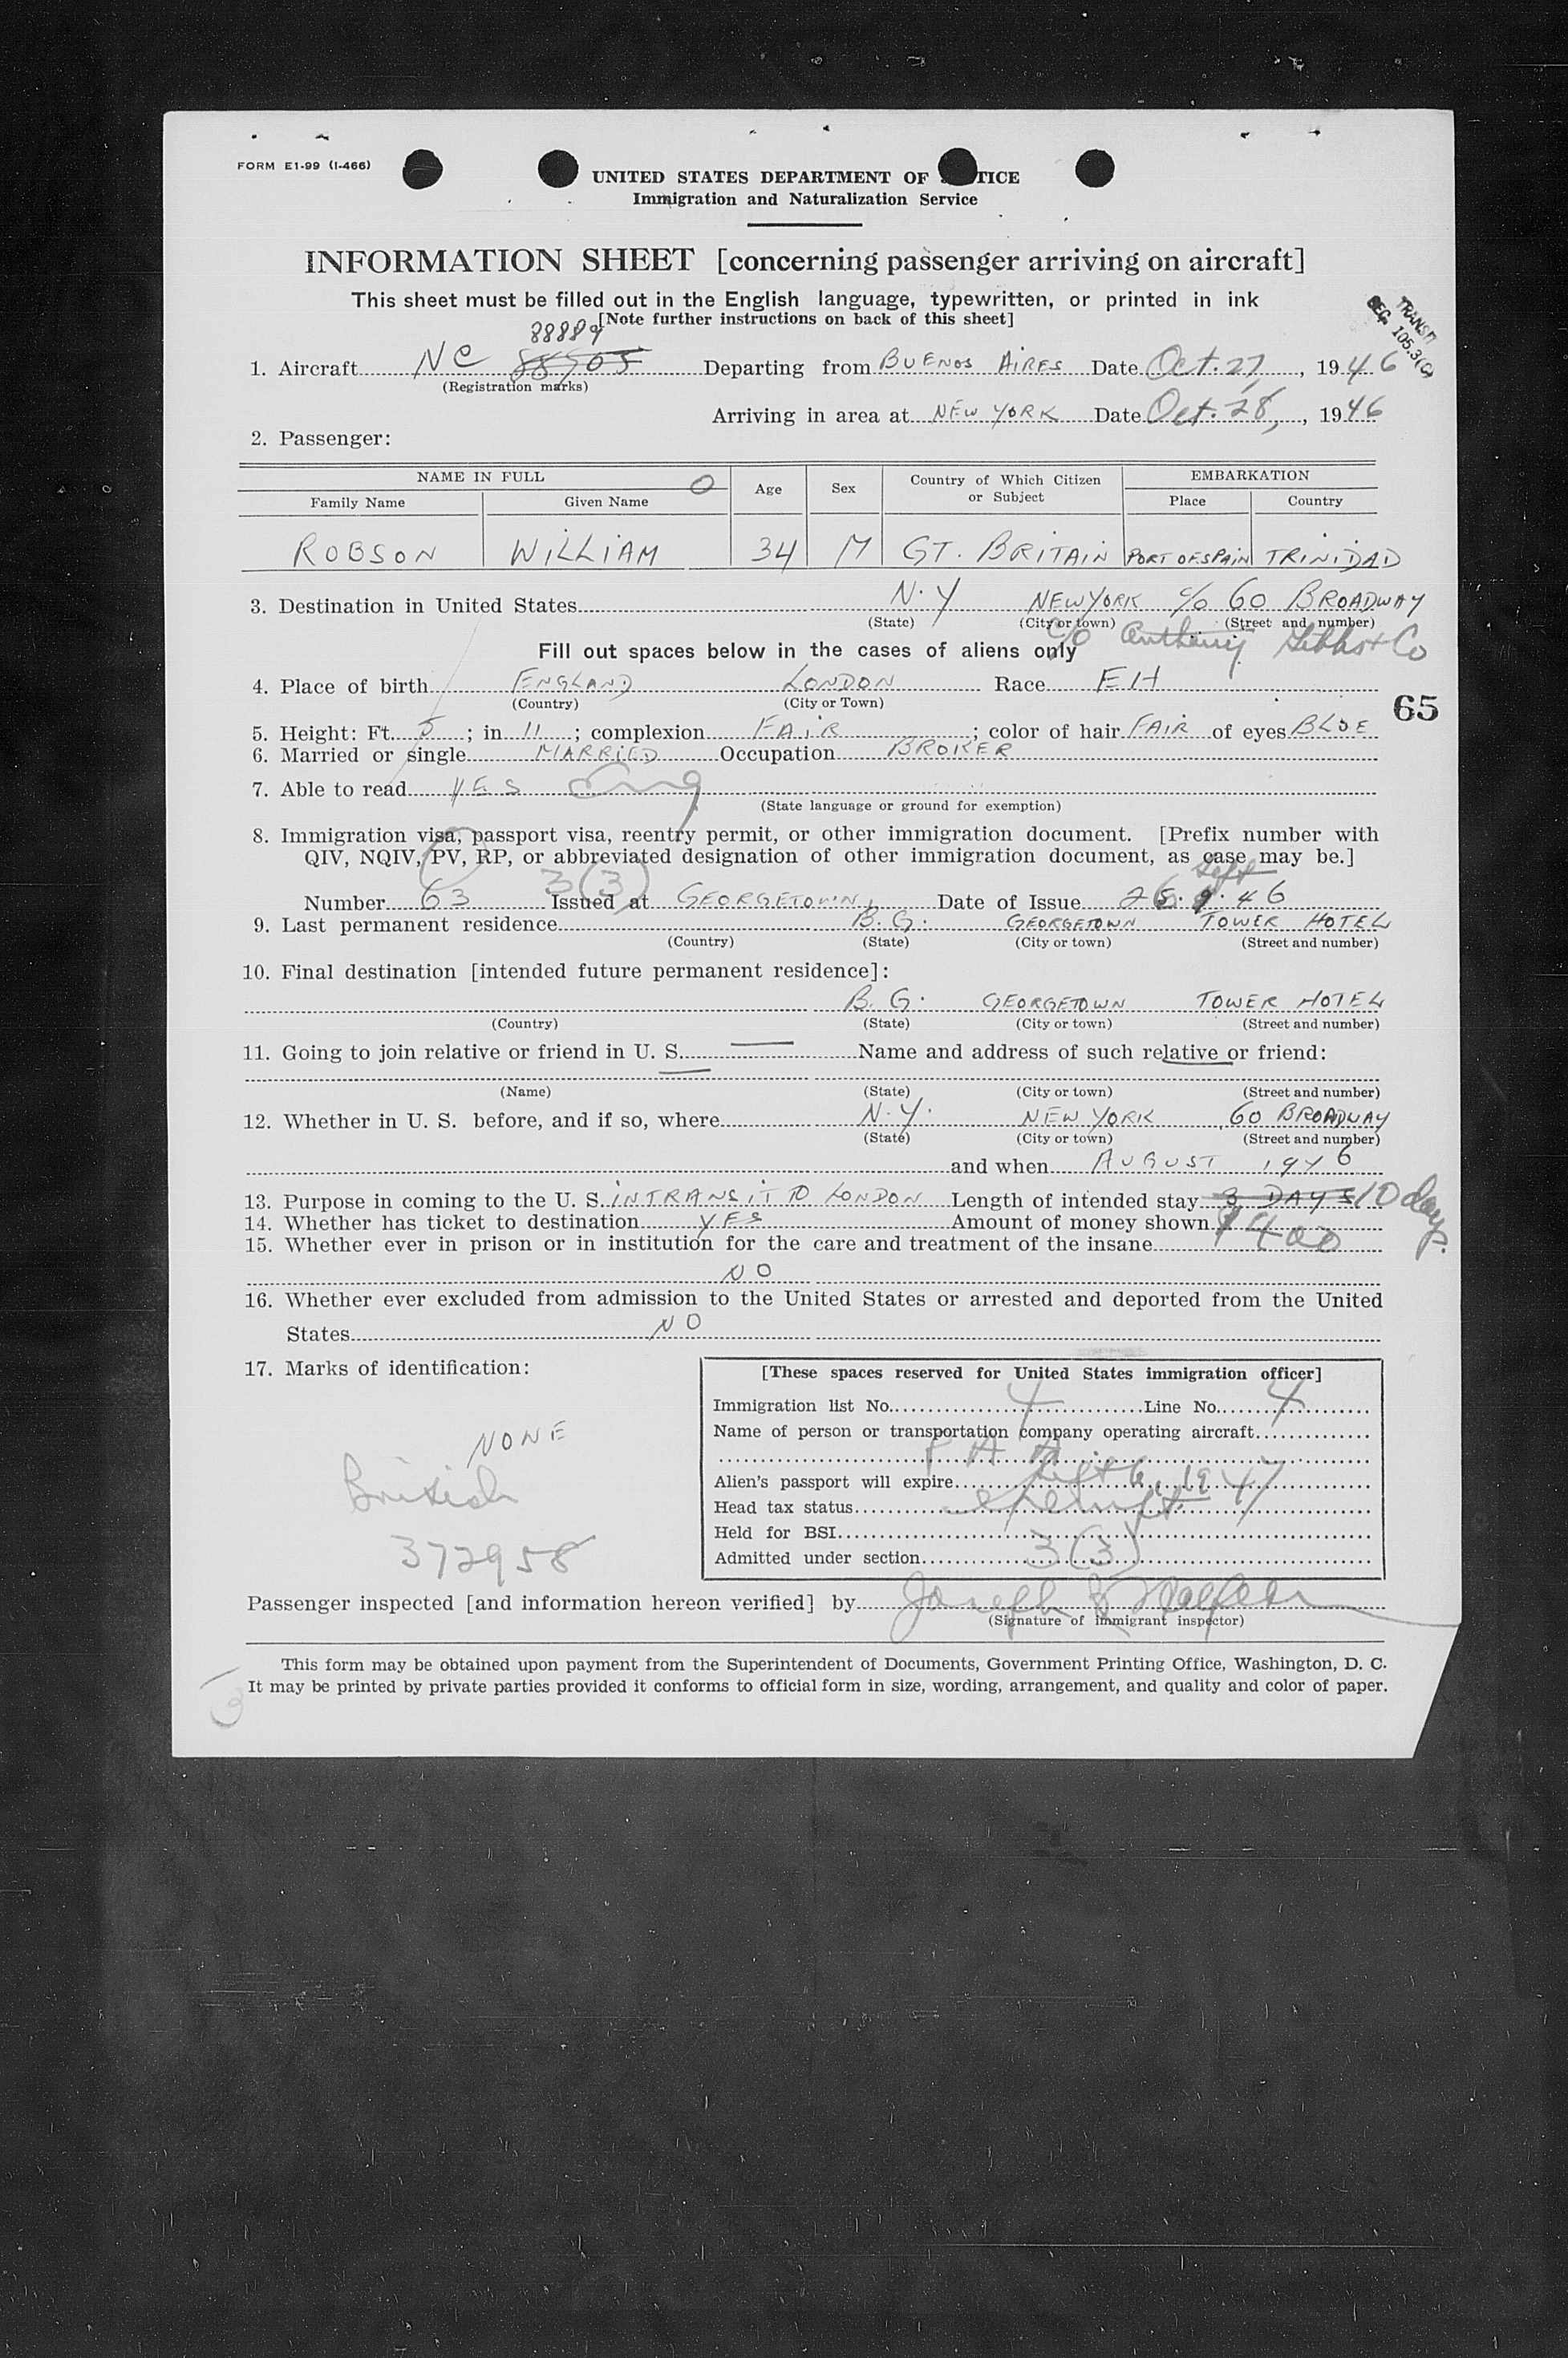 FORM E1-99 (I-466)
UNITED STATES DEPARTMENT OF TICE
Immigration and Naturalization Service
INFORMATION SHEET [concerning passenger arriving on aircraft]
This sheet must be filled out in the English language, typewritten, or printed in ink
[Note further instructions on back of this sheet]
TRANSIT
SEC. 105.3(c)
88889
1. Aircraft NC 88905 Departing from BUENOS AIRES Date Oct. 27, 1946
(Registration marks)
Arriving in area at NEW YORK Date Oct. 28, 1946
2. Passenger:
NAME IN FULL Age Sex Country of Which Citizen or Subject EMBARKATION
Family Name Given Name Place Country
ROBSON WILLIAM 34 M GT. BRITAIN PORT OF SPAIN TRINIDAD
3. Destination in United States N.Y NEW YORK c/o 60 BROADWAY
(State) (City or town) (Street and number)
c/o Anthony Gibbs & Co
Fill out spaces below in the cases of aliens only
4. Place of birth ENGLAND LONDON Race EH
(Country) (City or Town)
65
5. Height: Ft. 5; in 11; complexion FAIR; color of hair FAIR of eyes BLUE
6. Married or single MARRIED Occupation BROKER
7. Able to read YES Eng
(State language or ground for exemption)
8. Immigration visa, passport visa, reentry permit, or other immigration document. [Prefix number with
QIV, NQIV, PV, RP, or abbreviated designation of other immigration document, as case may be.]
3(3) Sept
Number 63 Issued at GEORGETOWN, Date of Issue 26.9.46
9. Last permanent residence B.G. GEORGETOWN TOWER HOTEL
(Country) (State) (City or town) (Street and number)
10. Final destination [intended future permanent residence]:
B.G. GEORGETOWN TOWER HOTEL
(Country) (State) (City or town) (Street and number)
11. Going to join relative or friend in U. S. — Name and address of such relative or friend:
(Name) (State) (City or town) (Street and number)
12. Whether in U. S. before, and if so, where N.Y. NEW YORK 60 BROADWAY
(State) (City or town) (Street and number)
and when AUGUST 1946
13. Purpose in coming to the U. S. IN TRANSIT TO LONDON Length of intended stay 3 DAYS 10 days.
14. Whether has ticket to destination YES Amount of money shown $400
15. Whether ever in prison or in institution for the care and treatment of the insane
NO
16. Whether ever excluded from admission to the United States or arrested and deported from the United
States NO
17. Marks of identification:
NONE
British
372958
[These spaces reserved for United States immigration officer]
Immigration list No. 4 Line No. 4
Name of person or transportation company operating aircraft
P A A
Alien's passport will expire Sept 6, 1947
Head tax status exempt
Held for BSI
Admitted under section 3(3)
Passenger inspected [and information hereon verified] by Joseph
(Signature of immigrant inspector)
This form may be obtained upon payment from the Superintendent of Documents, Government Printing Office, Washington, D. C.
It may be printed by private parties provided it conforms to official form in size, wording, arrangement, and quality and color of paper.